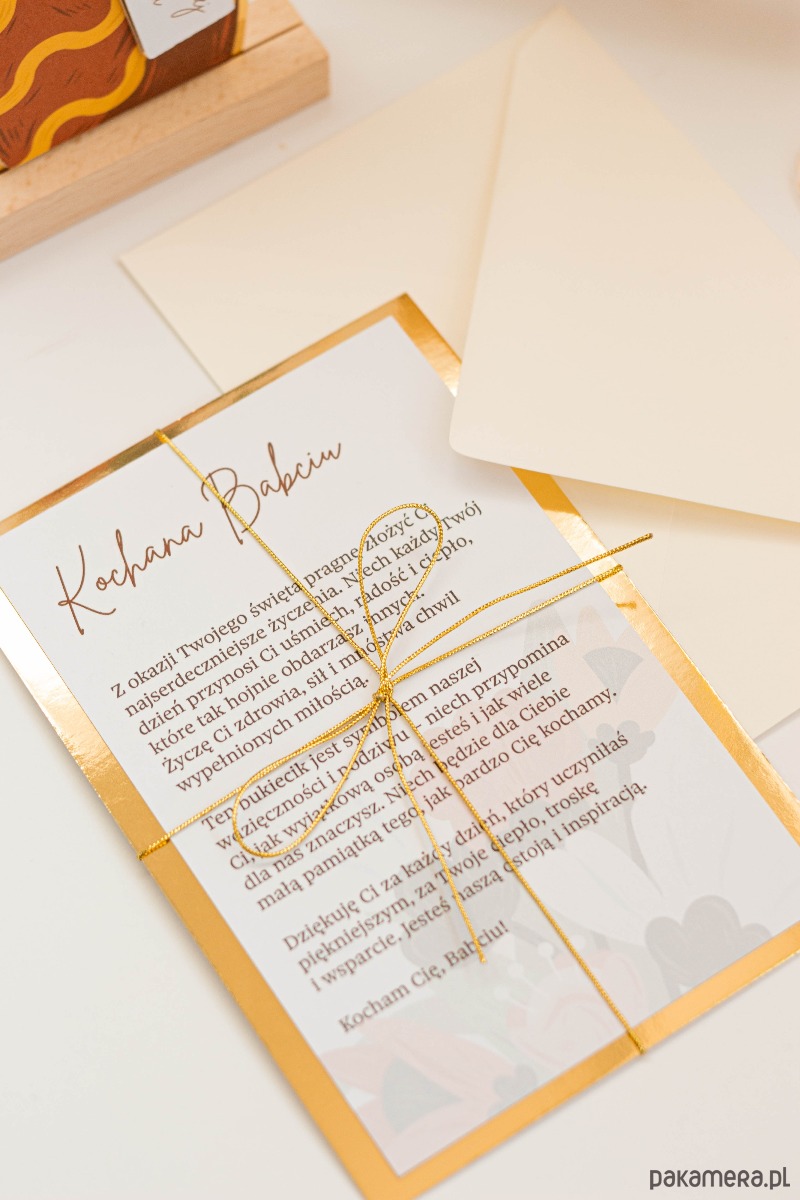 Kochana Babciu
Z okazji Twojego święta pragnę złożyć Ci
najserdeczniejsze życzenia. Niech każdy Twój
dzień przynosi Ci uśmiech, radość i ciepło,
które tak hojnie obdarzasz innych.
Życzę Ci zdrowia, sił i mnóstwa chwil
wypełnionych miłością.
Ten bukiecik jest symbolem naszej
wdzięczności i podziwu – niech przypomina
Ci, jak wyjątkową osobą jesteś i jak wiele
dla nas znaczysz. Niech będzie dla Ciebie
małą pamiątką tego, jak bardzo Cię kochamy.
Dziękuję Ci za każdy dzień, który uczyniłaś
piękniejszym, za Twoje ciepło, troskę
i wsparcie. Jesteś naszą ostoją i inspiracją.
Kocham Cię, Babciu!
pakamera.pl